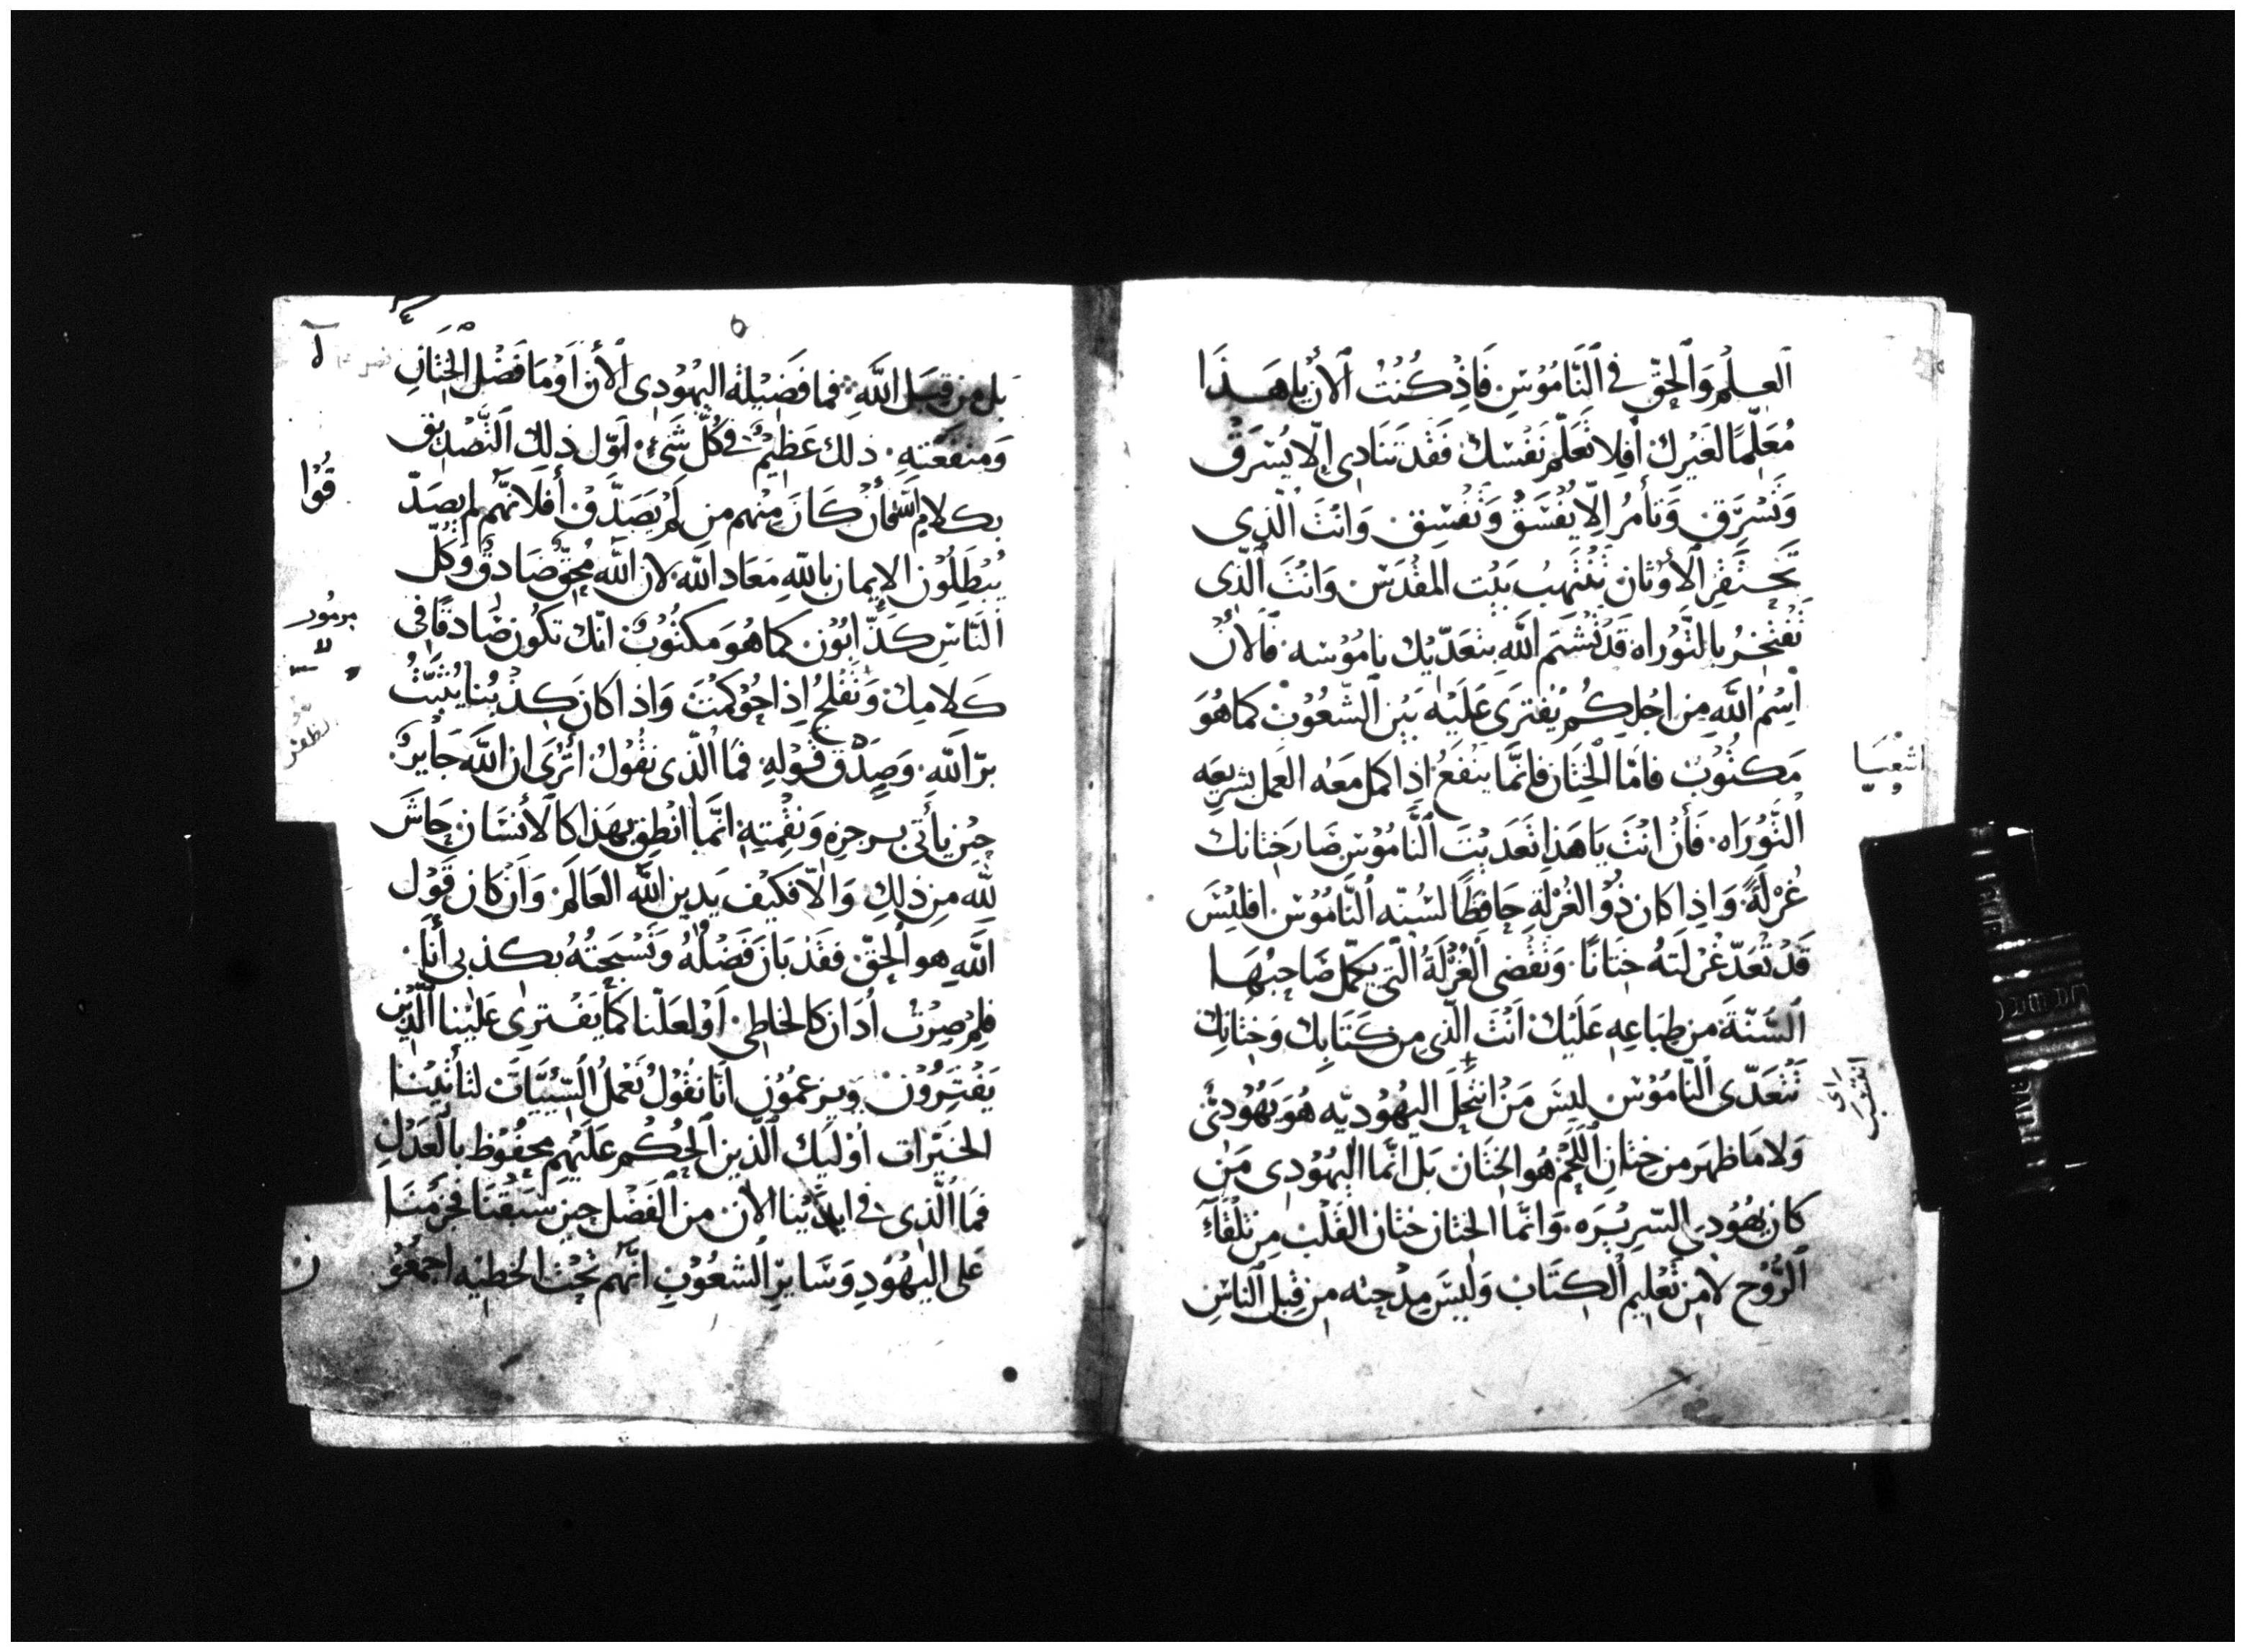 العِلْمُ وَالحقّ في النَّامُوسِ فَاِذْ كُنْتُ الاَنَ يا هَذَا
مُعَلّمًا لغَيْرك اَفلا تُعَلّم نَفسْك فَقَد تَنَادى اِلّا يُسْرَق
وَتَسْرَّق وَتَأمُرُ اِلّا يُفْسَق وَتَفْسِق وَانْتَ الّذِى
تَحْتَقِر الأوْثان تَنْتَهبُ بَيْت المقْدَس وَانتَ الّذى
تَفتَخرُ بالتَّوْراه قَد تُشتم اللَّه بتعَدّيك نامُوسه فالانْ
اسْمُ اللَّهِ مِن اجْلِكُم يُفترَى عَلَيْه بَيْن الشّعُوْب كما هُوَ
مَكتُوْبٌ فامّا الخِتَان فاِنَّما يَنْفَعُ اِذا كمل مَعَه العَمل بشريعَه
التَّوْرَاه فَأنْ انْتَ يَا هَذا تَعَديْت النَّامُوْس صَار خِتَانك
غُرْلَةً وَاِذا كان ذُو الغُرْلَةِ حَافِظًا لسُنّه النَّامُوْس افليْسَ
قَدْ تُعَدّ غُرْلَتهُ خِتَانًا وَتَقْضى الغُرْلَةُ الّتى يكمّل صَاحِبُهَا
السُّنّةَ من طِبَاعِهِ عَلَيْك اَنْتَ الّذى من كَتَابِك وَخِتَانِك
تَتَعَدّى النّامُوْس ليسَ مَن انْتَحَلَ اليهُوْديّه هُوَ يَهُوْدىّ
وَلا مَا ظهَر من خِتَان اللّحْم هُو الخِتَان بَل انَّما اليهُوْدِى مَن
كان يهُوْدى السّرِيْرَه وَانَّما الخِتان خِتان القَلْب مِن تلْقَآءِ
الرُّوْح لا مِن تَعْلِيم الكِتَاب وَليسَ مِدْحته من قِبل النّاسِ
اشعْيَا
بل من قِبَل اللَّه فما فَضِيْلة اليهُوْدِى الأن اَوْ مَا فَضْل الخِتَان
وَمنفعَتهِ ذلك عَظِيْم فى كُلّ شَىْء اَوّل ذلك التَّصْدِيق
بكلام اللّه فأن كَانَ مِنْهم من لَمْ يَصَدَّق أفَلاَنَّهُم لم يصَدّ
قُوْا
يُبْطِلُوْن الايمان باللّه مَعَاد اللَّه لان اللَّه مُحِقّ صَادقٌ وَكلّ
النّاسِ كَذّابُوْن كما هُوَ مَكتُوْبٌ انّك تكُون صَادقًا فى
مزمُور
كَلامِك وَتَفْلحُ اِذا حُوْكمْتَ وَاِذا كان كِذْبُنا يُثَبّتُ
برّ اللَّه وَصِدْق قَوْلِهِ فَمَا الّذى نقُوْلُ اتُرَى ان اللَّه جَايرٌ
حِيْن يأتى برجزه وَنقْمتِهِ انّما انْطِق بهَذا كالأنسَان حَاشَى
للّه مِن ذلِك وَالاّ فكيْف يَدِين اللَّه العَالَم وَاَن كان قَوْل
اللَّهِ هو الحَقّ فقَد بَانَ فَضْلُهُ وَتَسْبِحَتُهُ بكذبى أنَا
فلِمْ صِرْتُ اُدَان كالخاطِى اَوْ لعَلّنا كَما يَفْترِى عَليْنا الّذِين
يَفْتَرُوْن وَيَزعمُوْن انّا نقُوْلُ نَعْملُ السّيّيَات لتأتيْنا
الخَيْرات اوْليْك الّذِين الحُكْم عَلَيْهم محفُوْظ بالعَدْلِ
فمَا الّذى فى ايدْيْنا الانَ من الفَضْل حِيْن سَبَقْنا فجزَمْنَا
على اليهُوْدِ وَسَايِرِ الشعُوْبِ انَّهُم تَحْت الخَطِيْه اجمَعُوْ
ن